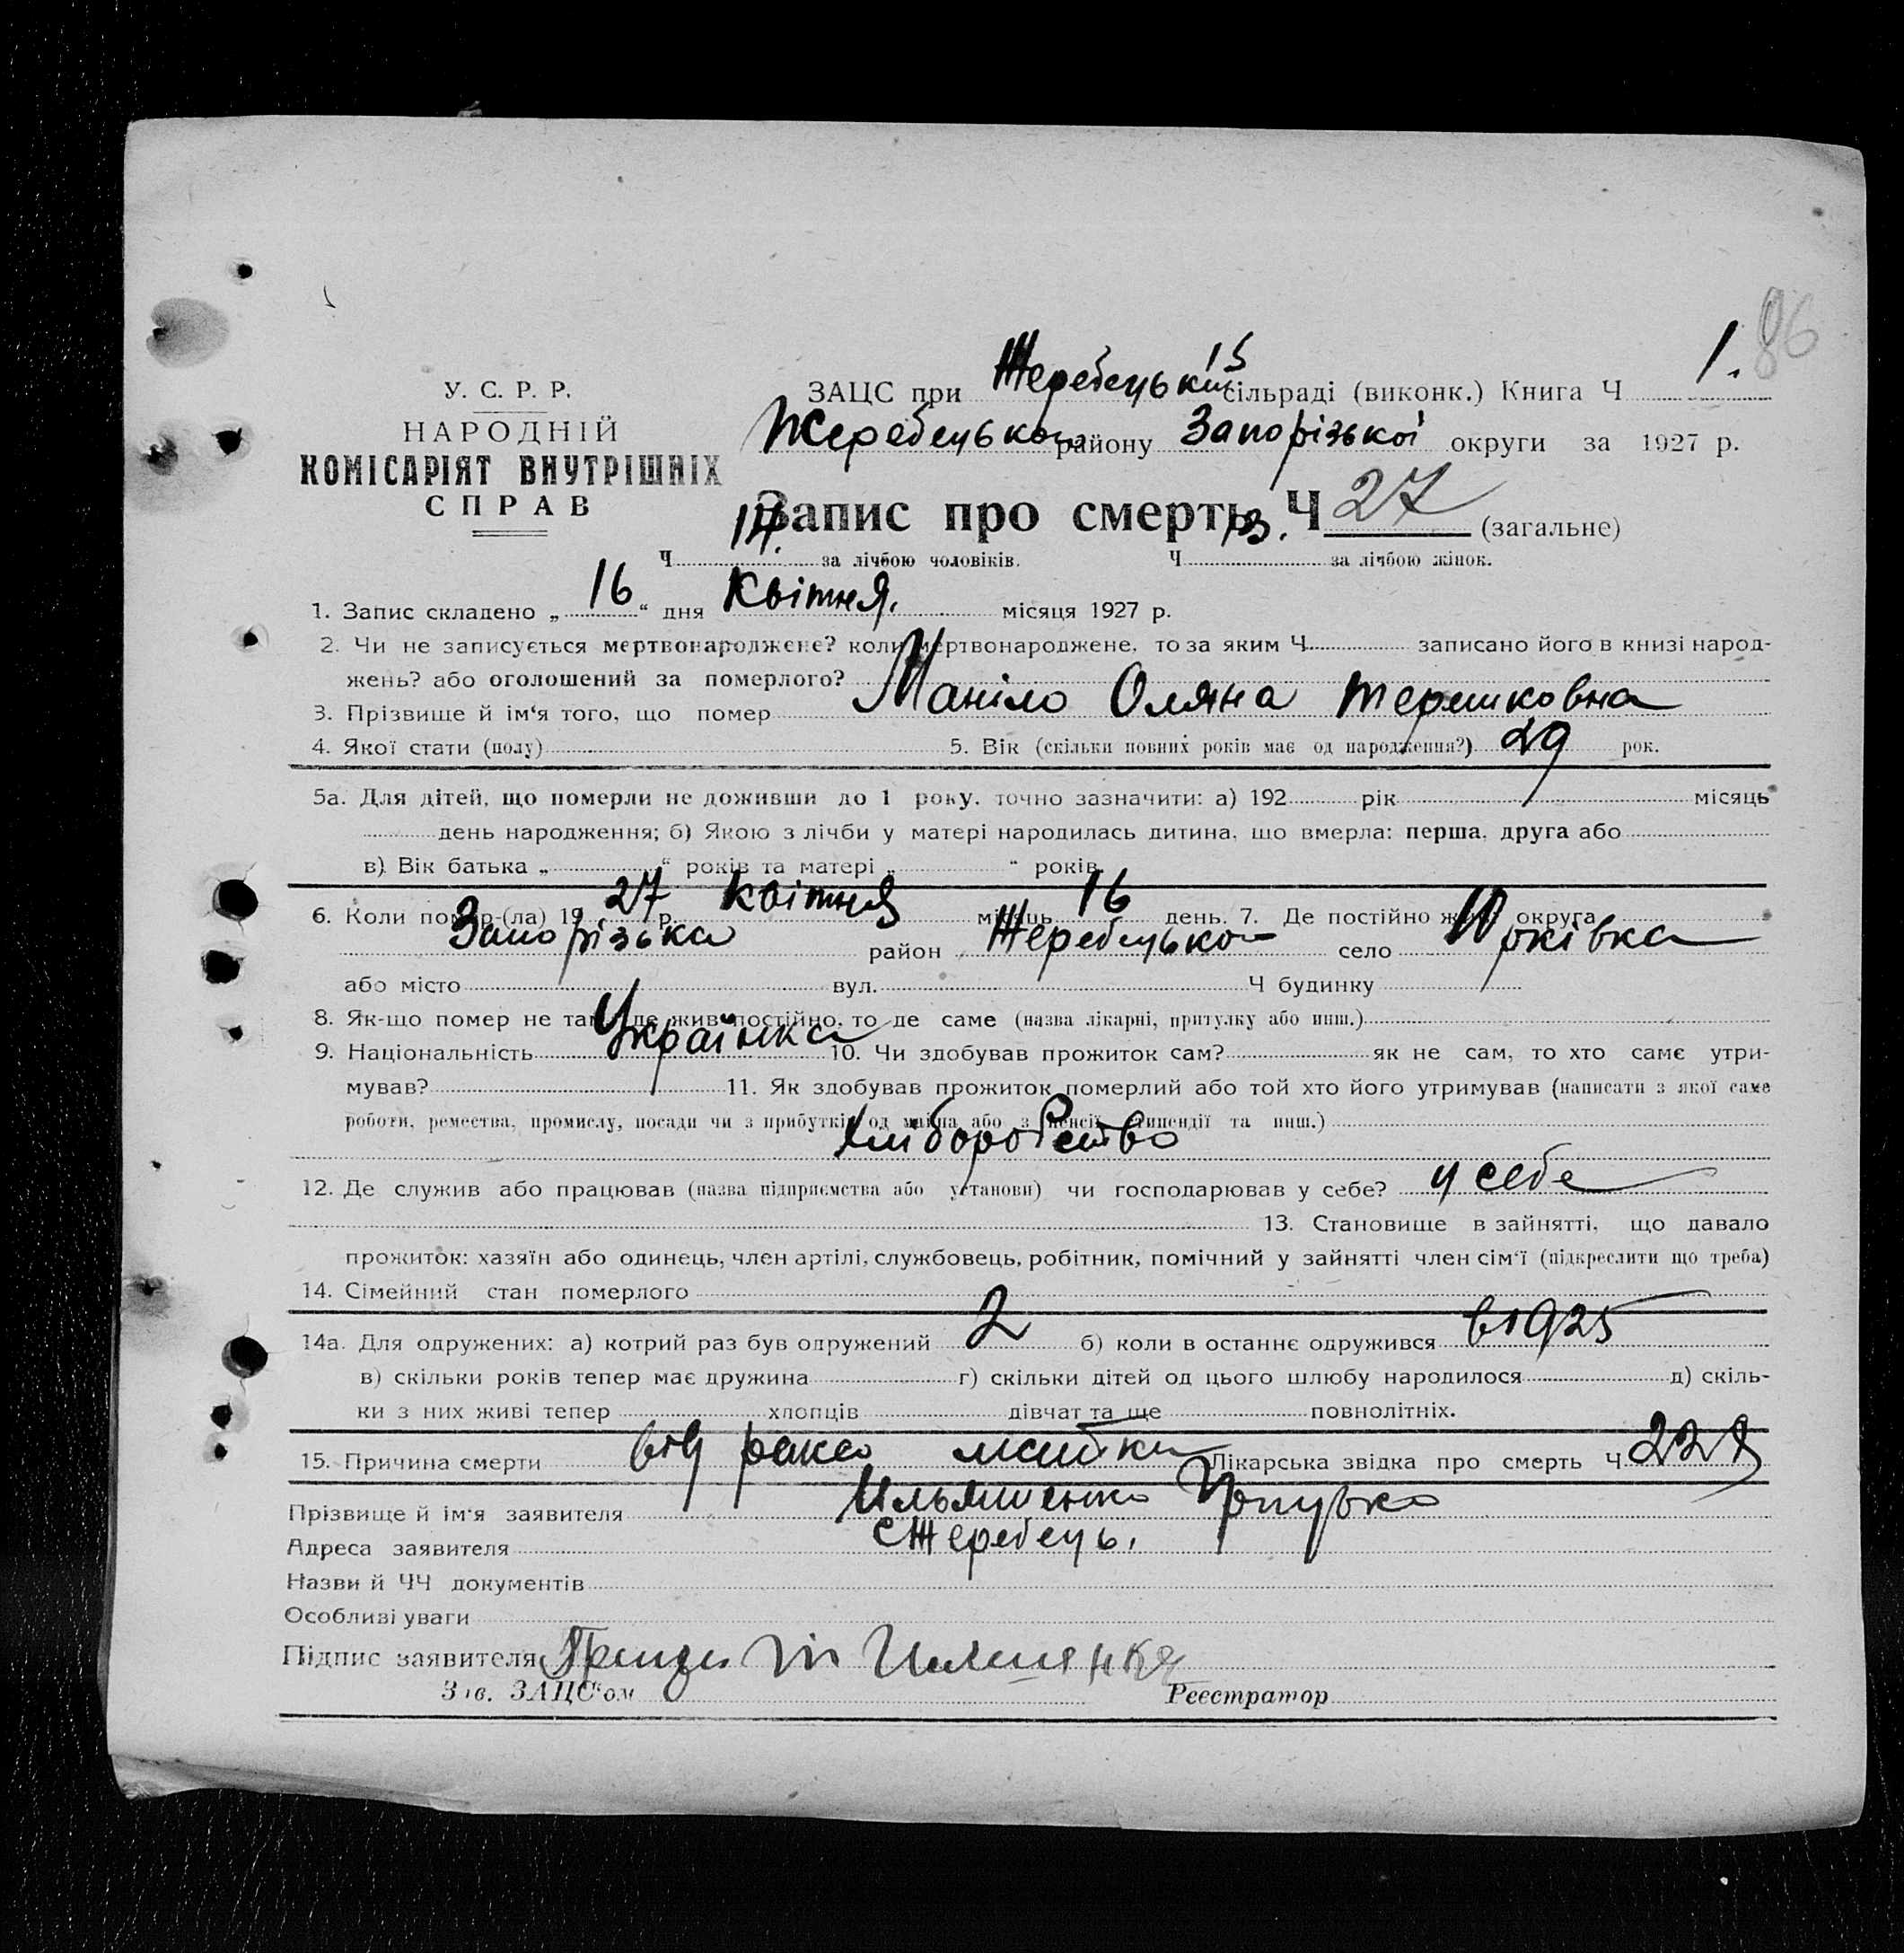 86
1.
У. С. Р. Р.
НАРОДНІЙ
КОМІСАРІЯТ ВНУТРІШНІХ
СПРАВ
ЗАЦС при Жеребецькій сільраді (виконк.) Книга Ч
Жеребецького району Запорізької округи за 1927 р.
Запис про смерть Ч 27 (загальне)
Ч 14. за лічбою чоловіків. Ч 13. за лічбою жінок.
1. Запис складено „ 16 “ дня Квітня. місяця 1927 р.
2. Чи не записується мертвонароджене? коли мертвонароджене, то за яким Ч записано його в книзі народ-
жень? або оголошений за померлого?
3. Прізвище й ім‘я того, що помер Маніло Оляна Терешковна
4. Якої стати (полу) 5. Вік (скільки повних років має од народження?) 29 рок.
5а. Для дітей, що померли не доживши до 1 року, точно зазначити: а) 192 рік місяць
день народження; б) Якою з лічби у матері народилась дитина, що вмерла: перша, друга або
в) Вік батька „ “ років та матері „ “ років.
6. Коли помер-(ла) 19 27 р. квітня місяць 16 день. 7. Де постійно жив: округа
Запорізька район Жеребецького село Юрківка
або місто вул. Ч будинку
8. Як-що помер не там, де жив постійно, то де саме (назва лікарні, притулку або инш.)
9. Національність Українка 10. Чи здобував прожиток сам? як не сам, то хто саме утри-
мував? 11. Як здобував прожиток померлий або той хто його утримував (написати з якої саме
роботи, ремества, промислу, посади чи з прибутків од майна або з пенсії, стипендії та инш.)
Хліборобство
12. Де служив або працював (назва підприємства або установи) чи господарював у себе? у себе
13. Становище в зайнятті, що давало
прожиток: хазяїн або одинець, член артілі, службовець, робітник, помічний у зайнятті член сім‘ї (підкреслити що треба)
14. Сімейний стан померлого
14а. Для одружених: а) котрий раз був одружений 2 б) коли в останнє одружився в 1925
в) скільки років тепер має дружина г) скільки дітей од цього шлюбу народилося д) скіль-
ки з них живі тепер хлопців дівчат та ще повнолітніх.
15. Причина смерти від рака матки Лікарська звідка про смерть Ч
Прізвище й ім‘я заявителя Ильяшенко
Адреса заявителя с Жеребець.
Назви й ЧЧ документів
Особливі уваги
Підпис заявителя
Зав. ЗАЦС‘ом Реєстратор